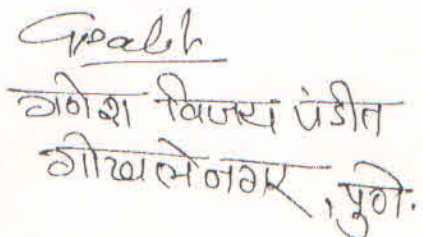 गणेश विजय पंडीत
गोखलेनगर, पुणे.